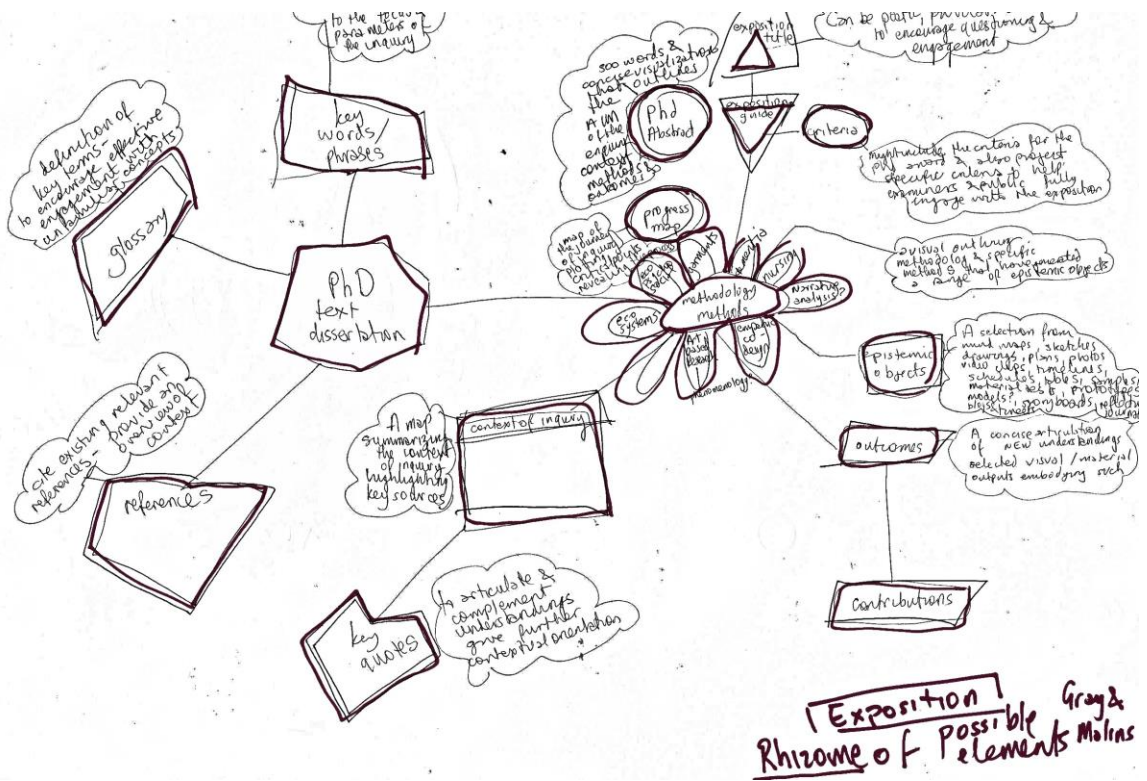 to the
parameters of
the inquiry
key
words/
phrases
definition of
key terms -
to encourage effective
engagement with
unfamiliar concepts
glossary
PhD
text
dissertation
cite existing relevant
references - provide an
overview of
context
references
A map
summarizing
the context
of inquiry
highlighting
key sources
context of inquiry
key
quotes
to articulate &
complement
understandings
give further
contextual orientation
300 words &
concise visualization
that outlines
the
AIM
of the
enquiry
context
methods &
outcomes
PhD
Abstract
exposition
title
Can be poetic,
to encourage questioning &
engagement
exposition
guide
criteria
might include the criteria for the
PhD award & also project
specific criteria to help
examiners & public fully
engage with the exposition
progress
map
map of
the journey
of inquiry
plotting
critical points
revealing
methodology
methods
dementia
nursing
narrative
analysis?
empathic
co
design
phenomenology?
Art
based
Research
eco
systems
a visual outlining
methodology & specific
methods that have generated
a range of epistemic objects
epistemic
objects
A selection from
mind maps, sketches
drawings, plans, photos
video clips, timelines,
schedules, tables, samples,
material tests, prototypes
models?
storyboards, reflective
journal
outcomes
A concise articulation
of NEW understandings
selected visual/material
outputs embodying such
contributions
Exposition
Rhizome of possible
elements
Gray &
Malins